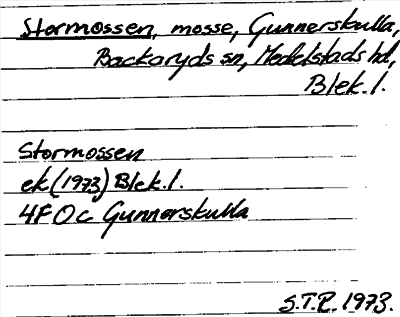 Stormossen, mosse, Gunnerskulla,
Backaryds sn, Medelstads hd,
Blek.l.
Stormossen
ek (1973) Blek.l.
4F 0c Gunnerskulla
S.T.R. 1973.